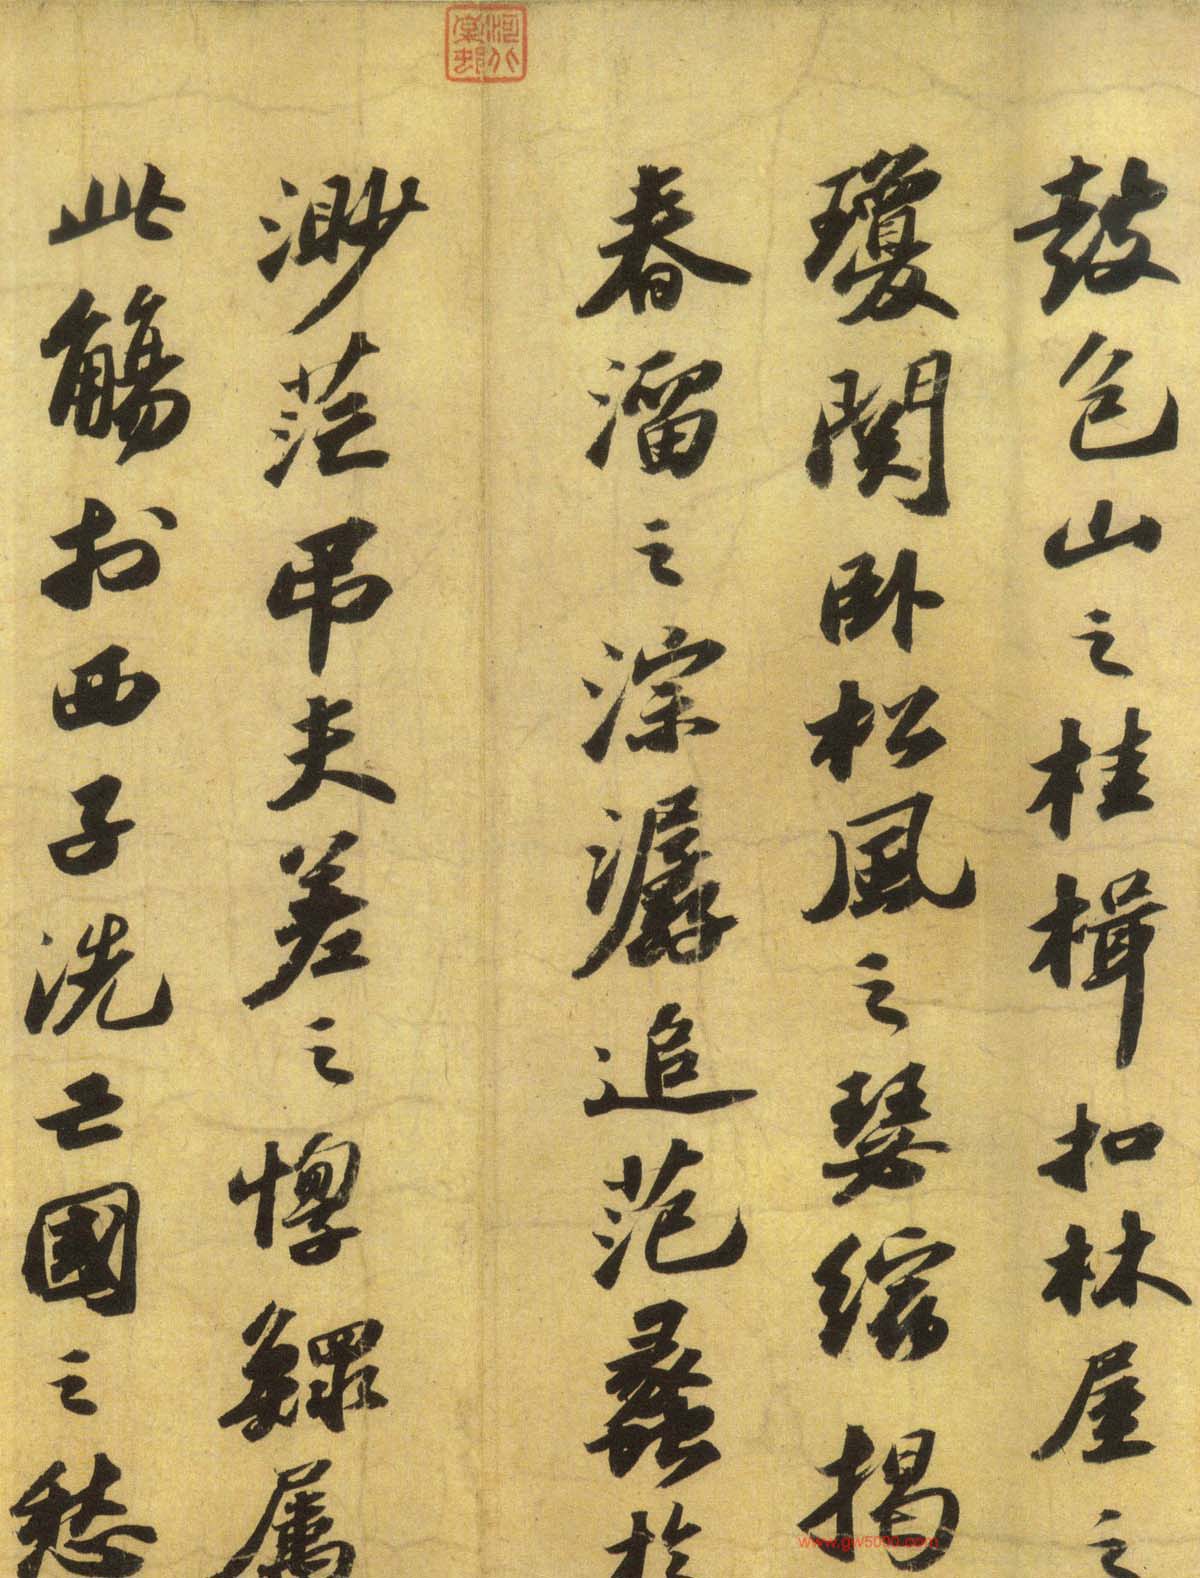 鼓包山之桂楫扣林屋之
瓊關卧松風之瑟縮揭
春溜之淙潺追范蠡於
渺茫弔夫差之惸鰥属
此觴於西子洗亡國之愁
www.gw5000.com